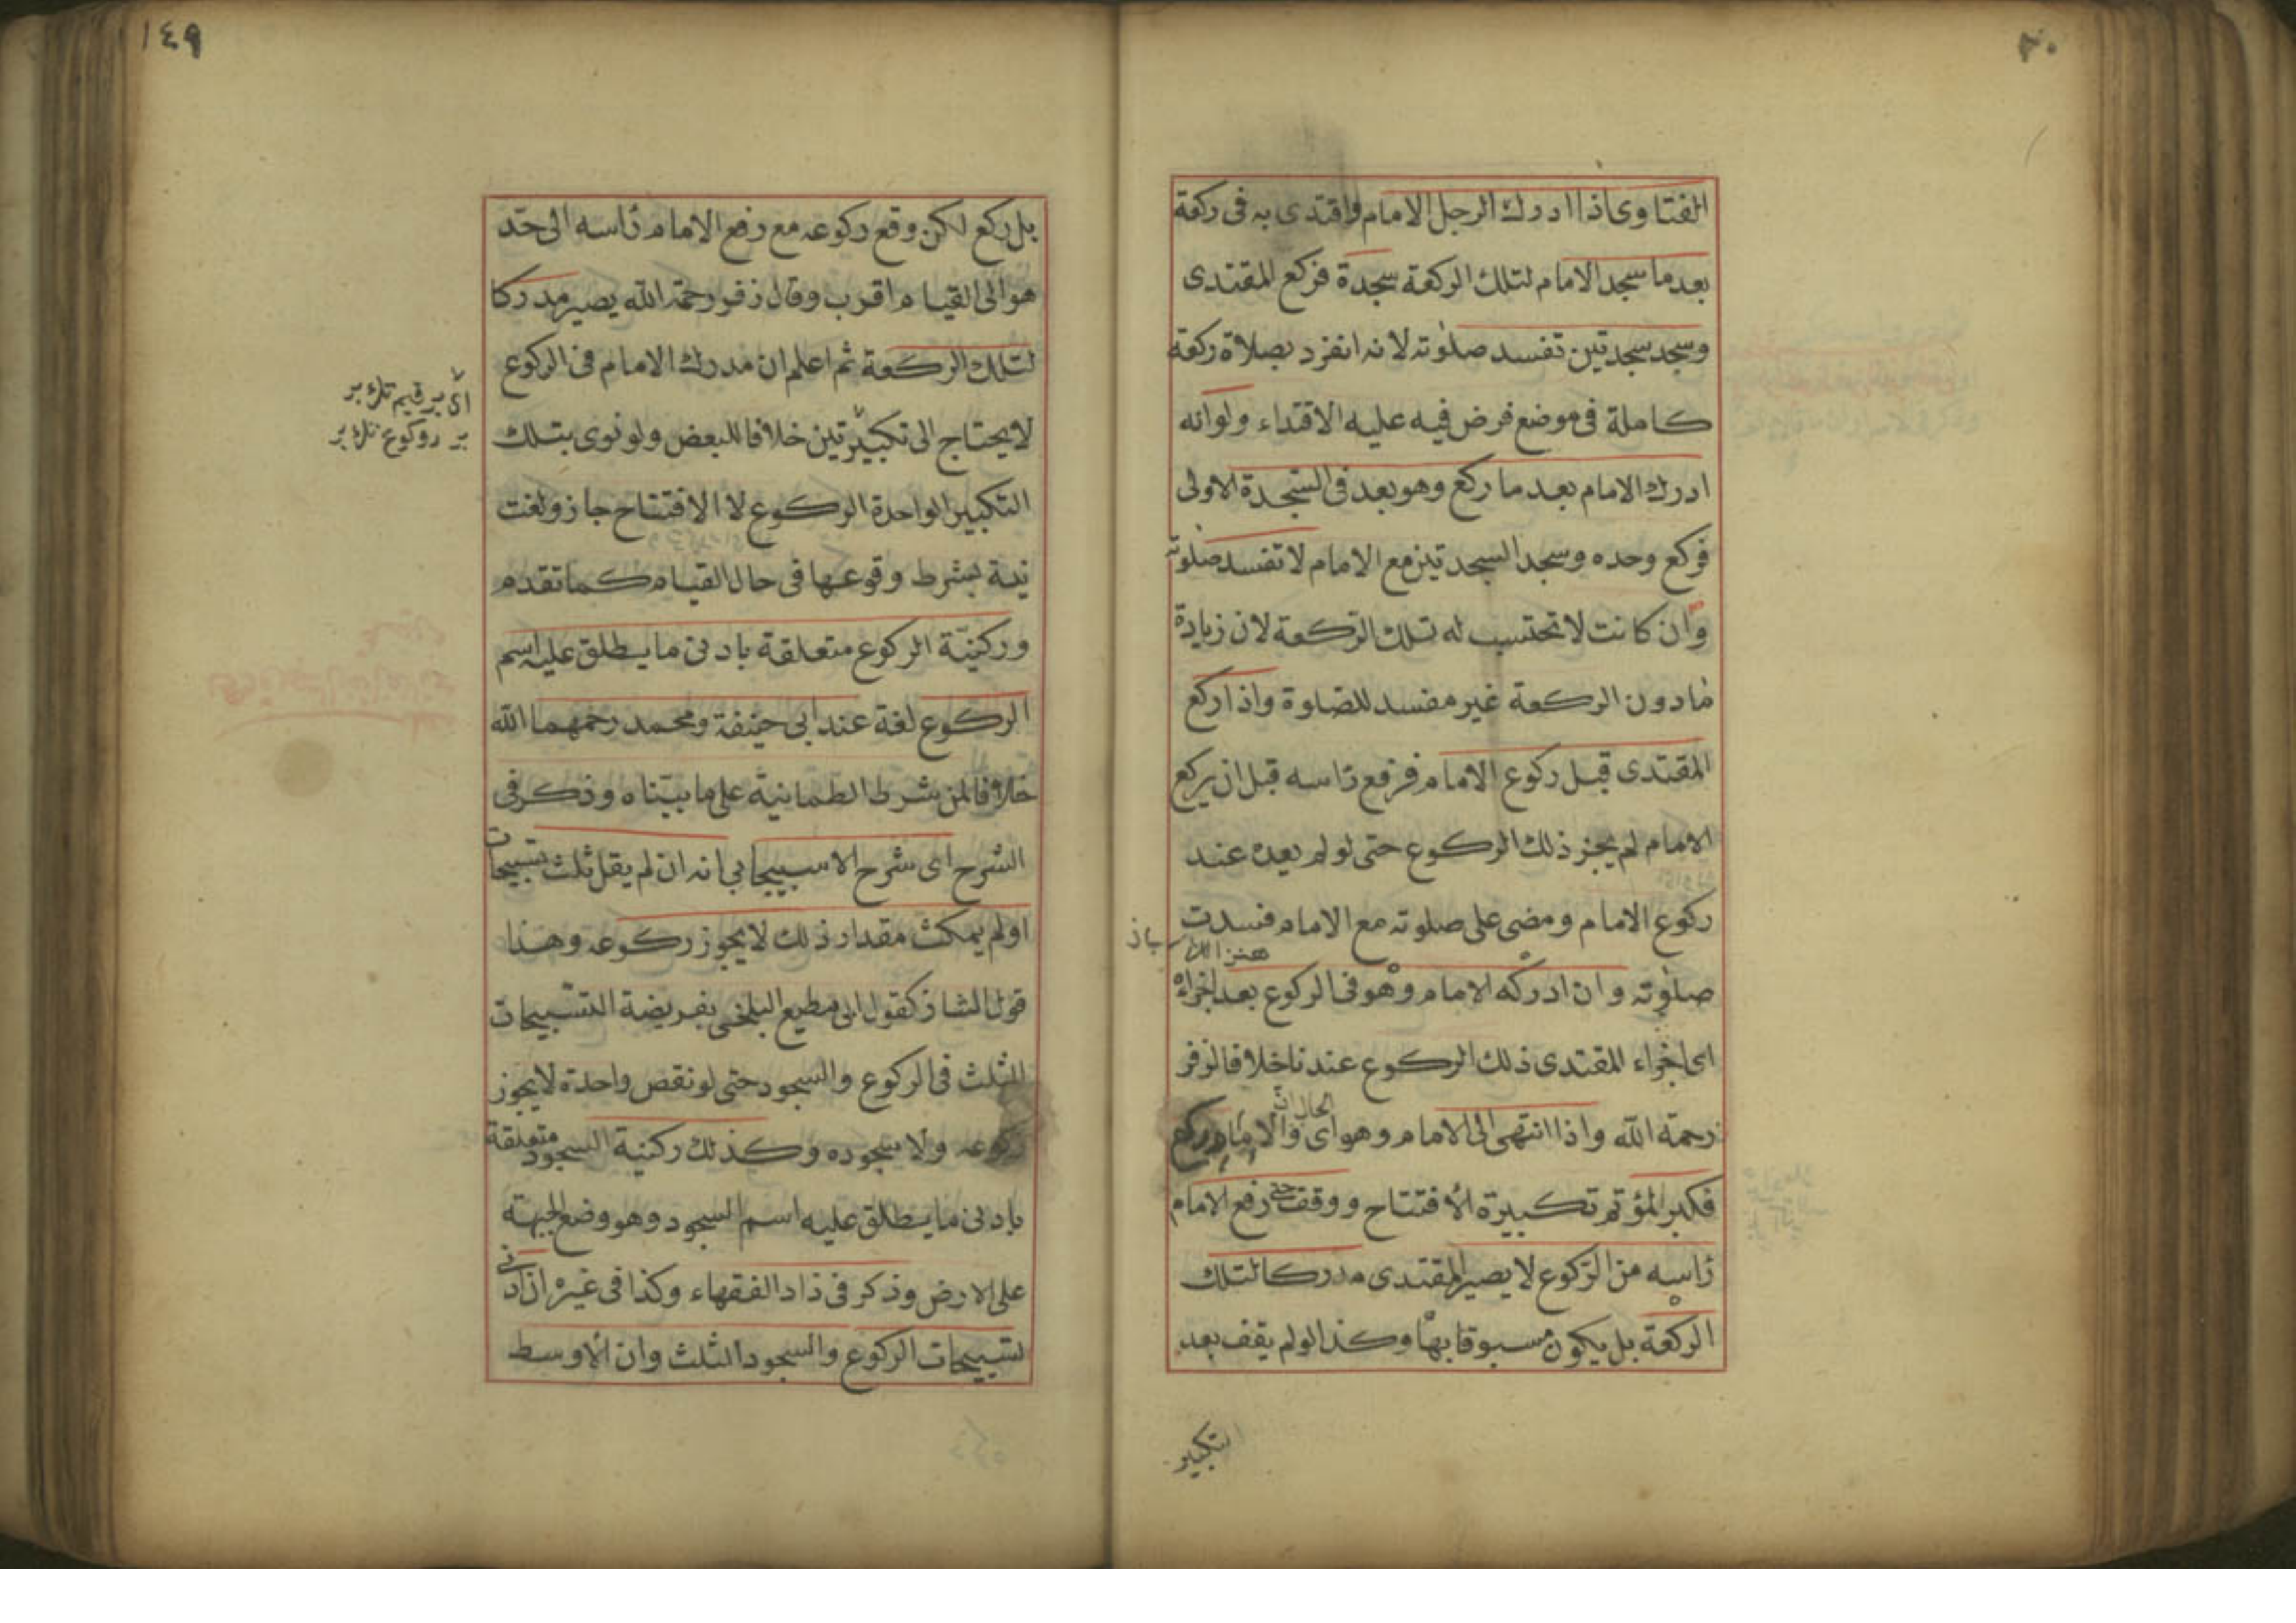 الفتاوى اذا ادرك الرجل الامام واقتدى به فى ركعة
بعد ما سجد الامام لتلك الركعة سجدة فركع المقتدى
وسجد سجدتين تفسد صلوته لانه انفرد بصلاة ركعة
كاملة فى موضع فرض فيه عليه الاقتداء ولو انه
ادرك الامام بعد ما ركع وهو بعد فى السجدة الاولى
فركع وحده وسجد السجدتين مع الامام لا تفسد صلوته
وان كانت لا تحتسب له تلك الركعة لان زيادة
ما دون الركعة غير مفسد للصلوة واذا ركع
المقتدى قبل ركوع الامام فرفع راسه قبل ان يركع
الامام لم يجز ذلك الركوع حتى لو لم يعده عند
ركوع الامام ومضى على صلوته مع الامام فسدت
صلوته وان ادركه الامام وهو فى الركوع بعد اجزاه
اى اجزاء المقتدى ذلك الركوع عندنا خلافا لزفر
الحال ان
رحمة الله واذا انتهى الى الامام وهو اى والامام يركع
فكبر المؤتم تكبيرة الافتتاح ووقف حتى رفع الامام
راسه من الركوع لا يصير المقتدى مدركا لتلك
الركعة بل يكون مسبوقا بها وكذا لو لم يقف بعد
التكبير
١٤٩
بل ركع لكن وقع ركوعه مع رفع الامام راسه الى حد
هو الى القيام اقرب وقال زفر رحمة الله يصير مدركا
لتلك الركعة ثم اعلم ان مدرك الامام فى الركوع
لا يحتاج الى تكبيرتين خلافا للبعض ولو نوى بتلك
التكبير الواحدة الركوع لا الافتتاح جاز ولغت
نية بشرط وقوعها فى حال القيام كما تقدم
وركنية الركوع متعلقة بادنى ما يطلق عليه اسم
الركوع لغة عند ابى حنيفة ومحمد رحمهما الله
خلافا لمن شرط الطمانية على ما بيناه وذكر فى
الشرح اى شرح الاسبيجابى انه ان لم يقل ثلث تسبيحات
او لم يمكث مقدار ذلك لا يجوز ركوعه وهذا
قول الشاذ كقول ابى مطيع البلخى بفريضة التسبيحات
الثلث فى الركوع والسجود حتى لو نقص واحدة لا يجوز
ركوعه ولا سجوده وكذلك ركنية السجود متعلقة
بادنى ما يطلق عليه اسم السجود وهو وضع الجبهة
على الارض وذكر فى زاد الفقهاء وكذا فى غيره ان ادنى
تسبيحات الركوع والسجود الثلث وان الاوسط